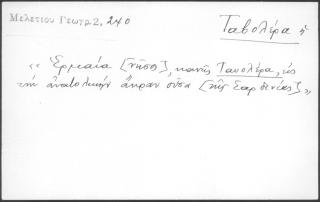 Μελετίου Γεωγρ. 2, 240
Ταβολέρα ἡ
« Ἑρμαία [νῆσος], κοινῶς Ταυολέρα, εἰς
τὴν ἀνατολικὴν ἄκραν οὖσα [τῆς Σαρδινίας] »